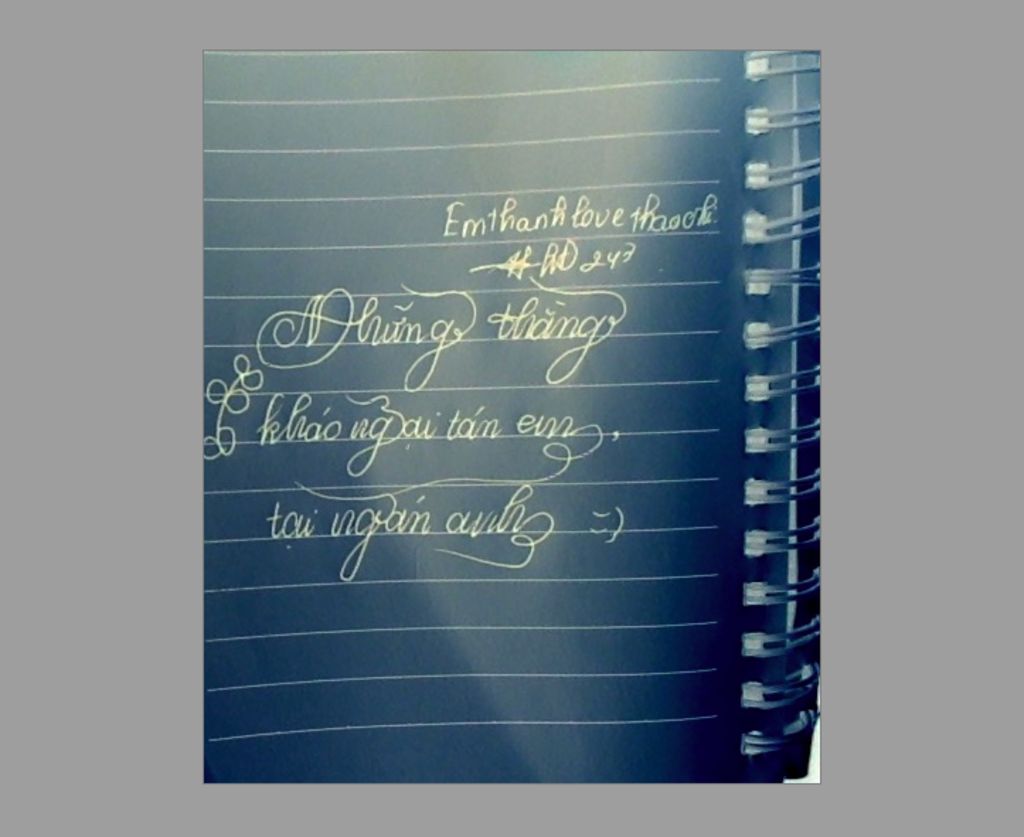 Emthanh love thaochi
247
Những thằng
kháo ngại tán em,
tại ngán anh =)